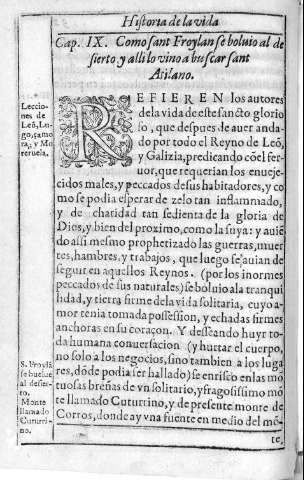 Historia de la vida
Cap. IX. Como sant Froylan se boluio al de
sierto, y alli lo vino a buscar sant
Atilano.
Leccio-
nes de
Leō, Lu-
go, çamo
ra, y Mo
reruela.
REFIEREN los autores
de la vida de este sancto glorio
so, que despues de auer anda-
do por todo el Reyno de Leō,
y Galizia, predicando cōel fer-
uor, que requerian los enueje-
cidos males, y peccados de sus habitadores, y co
mo se podia esperar de zelo tan inflammado,
y de charidad tan sedienta de la gloria de
Dios, y bien del proximo, como la suya: y auiē
do assi mesmo prophetizado las guerras, muer
tes, hambres, y trabajos, que luego se auian de
seguir en aquellos Reynos. (por los inormes
peccados de sus naturales) se boluio a la tranqui
lidad, y tierra firme de la vida solitaria, cuyo a-
mor tenia tomada possession, y echadas firmes
anchoras en su coraçon. Y desseando huyr to
da humana conuersacion (y hurtar el cuerpo,
no solo a los negocios, sino tambien a los luga
res, dōde podia ser hallado) se enrisco en las mō
tuosas breñas de vn solitario, y fragosissimo mō
te llamado Cuturrino, y de presente monte de
Corros, donde ay vna fuente en medio del mō-
S. Froylā
se buelue
al desier-
to.
Monte
llamado
Cuturri-
no.
te,